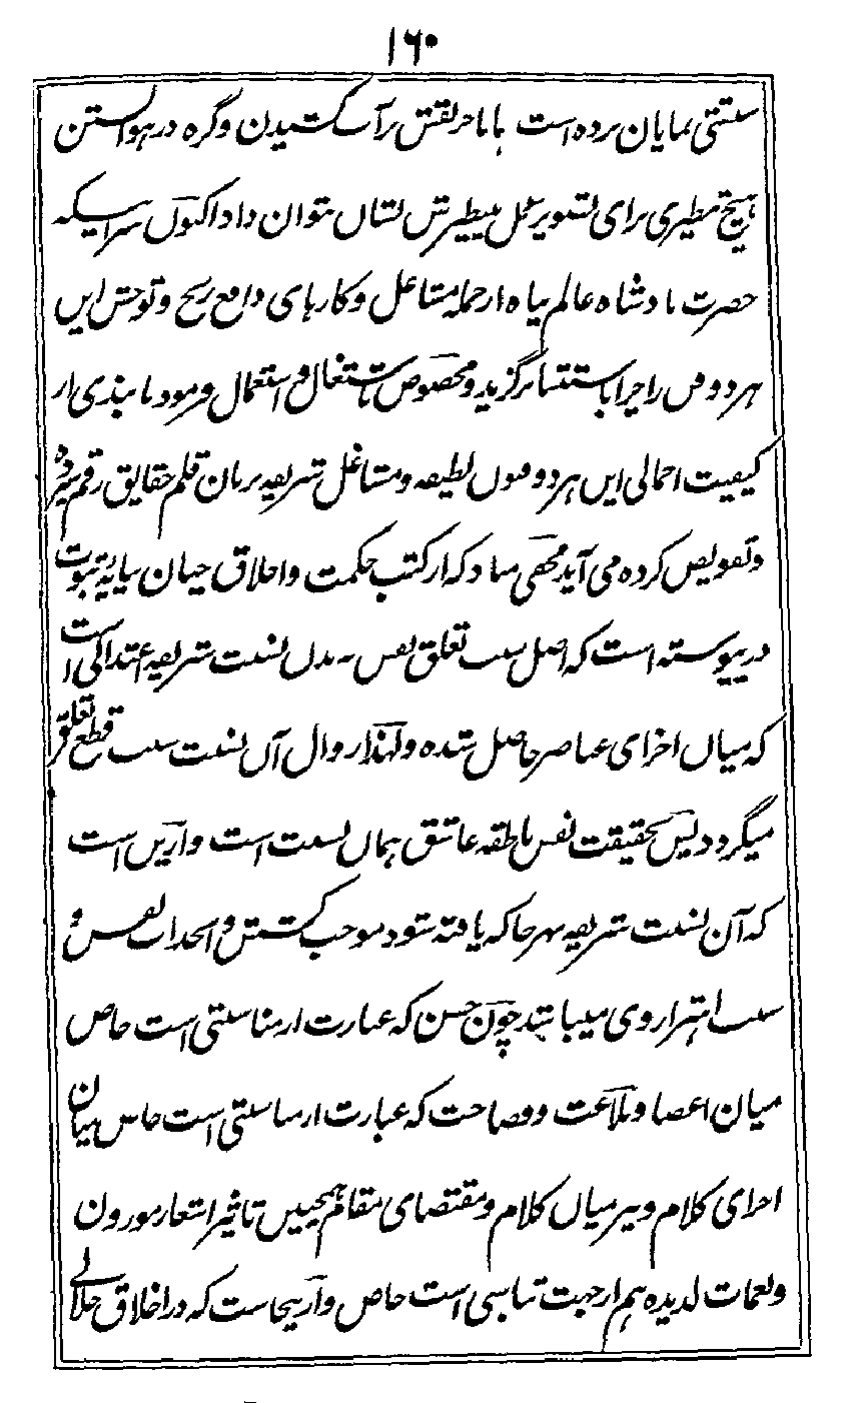 ۱۶۰
سستی نمایان برده است یا باحر نقش بر آب کشیدن و گره در هوا بستن
هیچ نظیری برای تصویر شکل بینظیرش نشان نتوان داد اکنون سر اینکه
حضرت بادشاه عالم پناه از جمله مشاغل و کارهای دافع رنج و توحش این
هر دو فن را چرا باستثنا برگزید و مخصوص باشتغال و استعمال فرمود با بندی از
کیفیت اجمالی این هر دو فنون لطیفه و مشاغل شریفه بزبان قلم حقایق رقم سپرده
و تفویض کرده می آید مخفی مباد که از کتب حکمت و اخلاق چنان بپایه ثبوت
در پیوسته است که اصل سبب تعلق نفس به بدن نسبت شریفه اعتدالی است
که میان اجزای عناصر حاصل شده و لهذا زوال آن نسبت سبب قطع تعلق
میگردد پس بحقیقت نفس ناطقه عاشق همان نسبت است و ازین است
که آن نسبت شریفه بهر جا که یافته شود موجب کشش و انجذاب نفس و
سبب اهتزاز وی میباشد چون حسن که عبارت از مناسبتی است خاص
میان اعضا و بلاغت و فصاحت که عبارت از مناسبتی است خاص میان
اجزای کلام و نیز میان کلام و مقتضای مقام همچنین تاثیر اشعار موزون
و نغمات لذیذه هم از جهت تناسبی است خاص و ازینجاست که در اخلاق جلالی